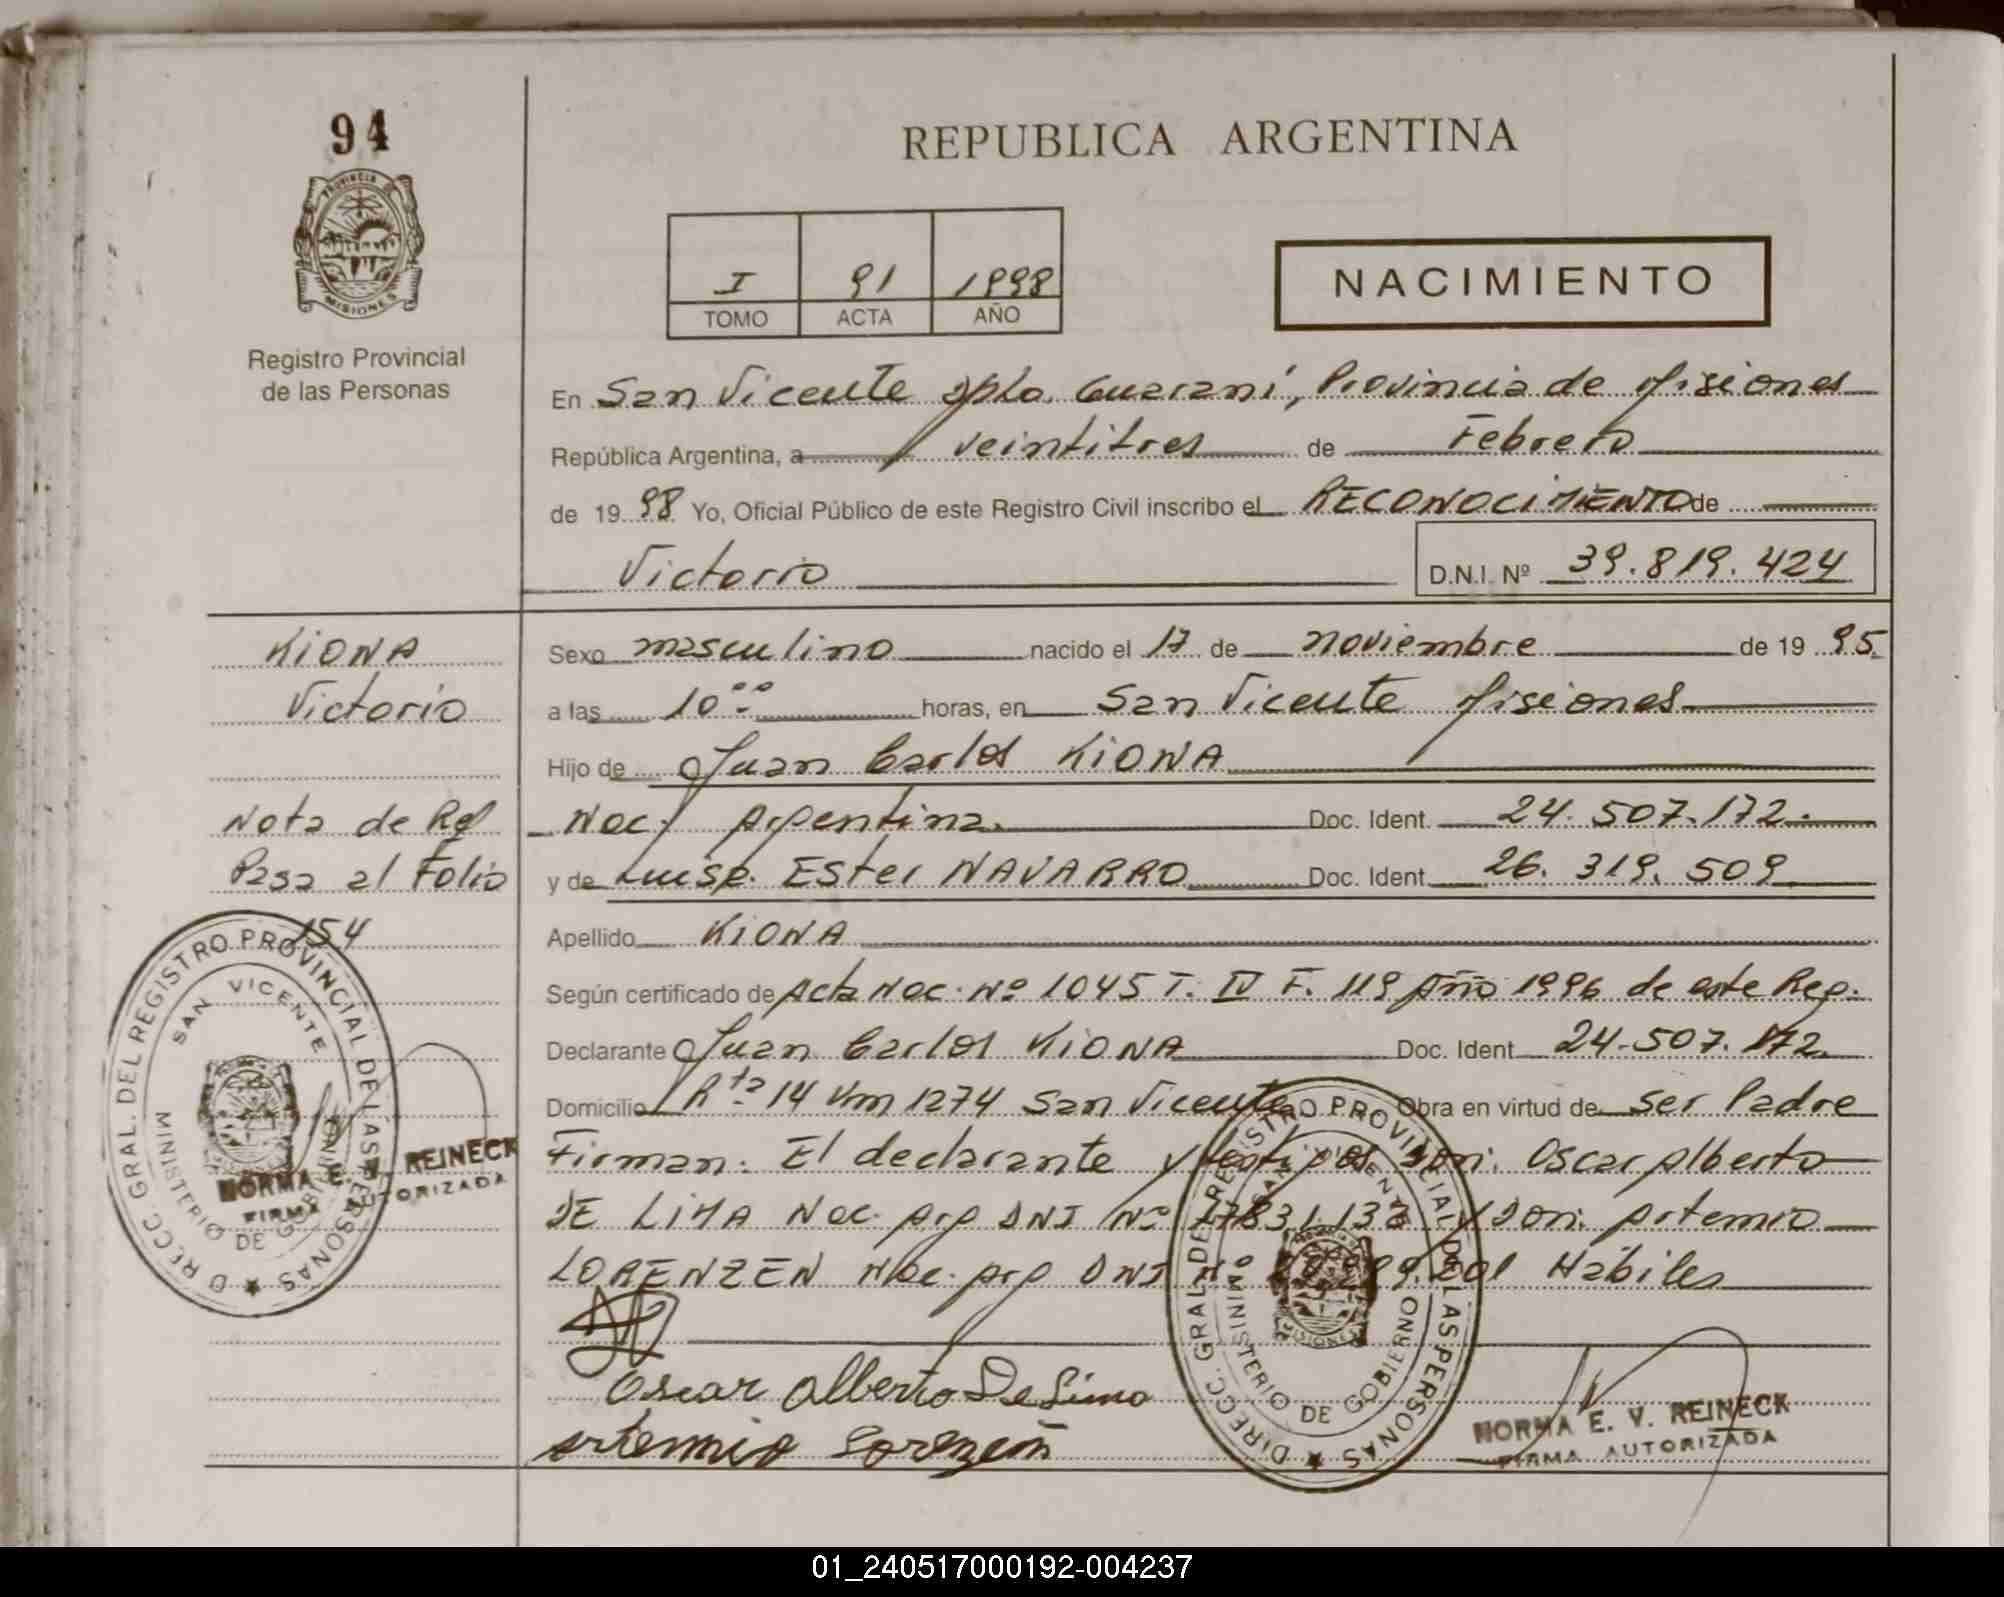 94
PROVINCIA DE
MISIONES
Registro Provincial
de las Personas
REPUBLICA ARGENTINA
I 91 1998
TOMO ACTA AÑO
NACIMIENTO
En San Vicente Dpto. Guaraní, Provincia de Misiones
República Argentina, a veintitres de Febrero
de 19 98 Yo, Oficial Público de este Registro Civil inscribo el RECONOCIMIENTO de
Victorio D.N.I. Nº 39.819.424
KIONA
Victorio
Nota de Ref
Pasa al Folio
154
Sexo masculino nacido el 17 de noviembre de 19 95
a las 10 horas, en San Vicente Misiones
Hijo de Juan Carlos KIONA
Nac. Argentina. Doc. Ident. 24.507.172.
y de Luisa Ester NAVARRO Doc. Ident. 26.319.509
Apellido KIONA
Según certificado de Acta Nac. Nº 1045 T. IV F. 119 Año 1996 de este Reg.
Declarante Juan Carlos KIONA Doc. Ident. 24.507.172.
Domicilio Rta 14 Km 1274 San Vicente Obra en virtud de ser Padre
Firman: El declarante y testigos Don: Oscar Alberto
DE LIMA Nac. Arg DNI Nº y Don: Artemio
LORENZEN Nac. Arg DNI Nº Hábiles
Oscar Alberto De Lima
Artemio Lorenzen
DIRECC. GRAL. DEL REGISTRO PROVINCIAL DE LAS PERSONAS
SAN VICENTE
MINISTERIO DE GOBIERNO
NORMA E. V. REINECK
FIRMA AUTORIZADA
DIRECC. GRAL. DEL REGISTRO PROVINCIAL DE LAS PERSONAS
SAN VICENTE
MISIONES
MINISTERIO DE GOBIERNO
NORMA E. V. REINECK
FIRMA AUTORIZADA
01_240517000192-004237